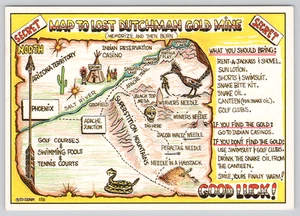 SECRET
MAP TO LOST DUTCHMAN GOLD MINE
(MEMORIZE AND THEN BURN)
SECRET
NORTH
ARIZONA TERRITORY
INDIAN RESERVATION
CASINO
PHOENIX
SALT RIVER
GOLDFIELD
APACHE
JUNCTION
SUPERSTITION MOUNTAINS
BLACK TOP
MESA
WEAVERS NEEDLE
WEAVERS NEEDLE
DIG HERE
JACOB WALTZ NEEDLE
PERALTAS NEEDLE
NEEDLE IN A HAYSTACK
GOLF COURSES
&
SWIMMING POOLS
&
TENNIS COURTS
WHAT YOU SHOULD BRING:
RENT-A-JACKASS & SHOVEL.
SUN LOTION.
SHORTS & SWIMSUIT.
SNAKE BITE KIT.
SNAKE OIL.
CANTEEN (FOR SNAKE OIL).
GOLF CLUBS.
IF YOU FIND THE GOLD:
GO TO INDIAN CASINOS.
IF YOU DON'T FIND THE GOLD:
USE SWIMSUIT & GOLF CLUBS.
DRINK THE SNAKE OIL FROM
THE CANTEEN.
SMILE, YOU'RE FINALLY WARM!
GOOD LUCK!